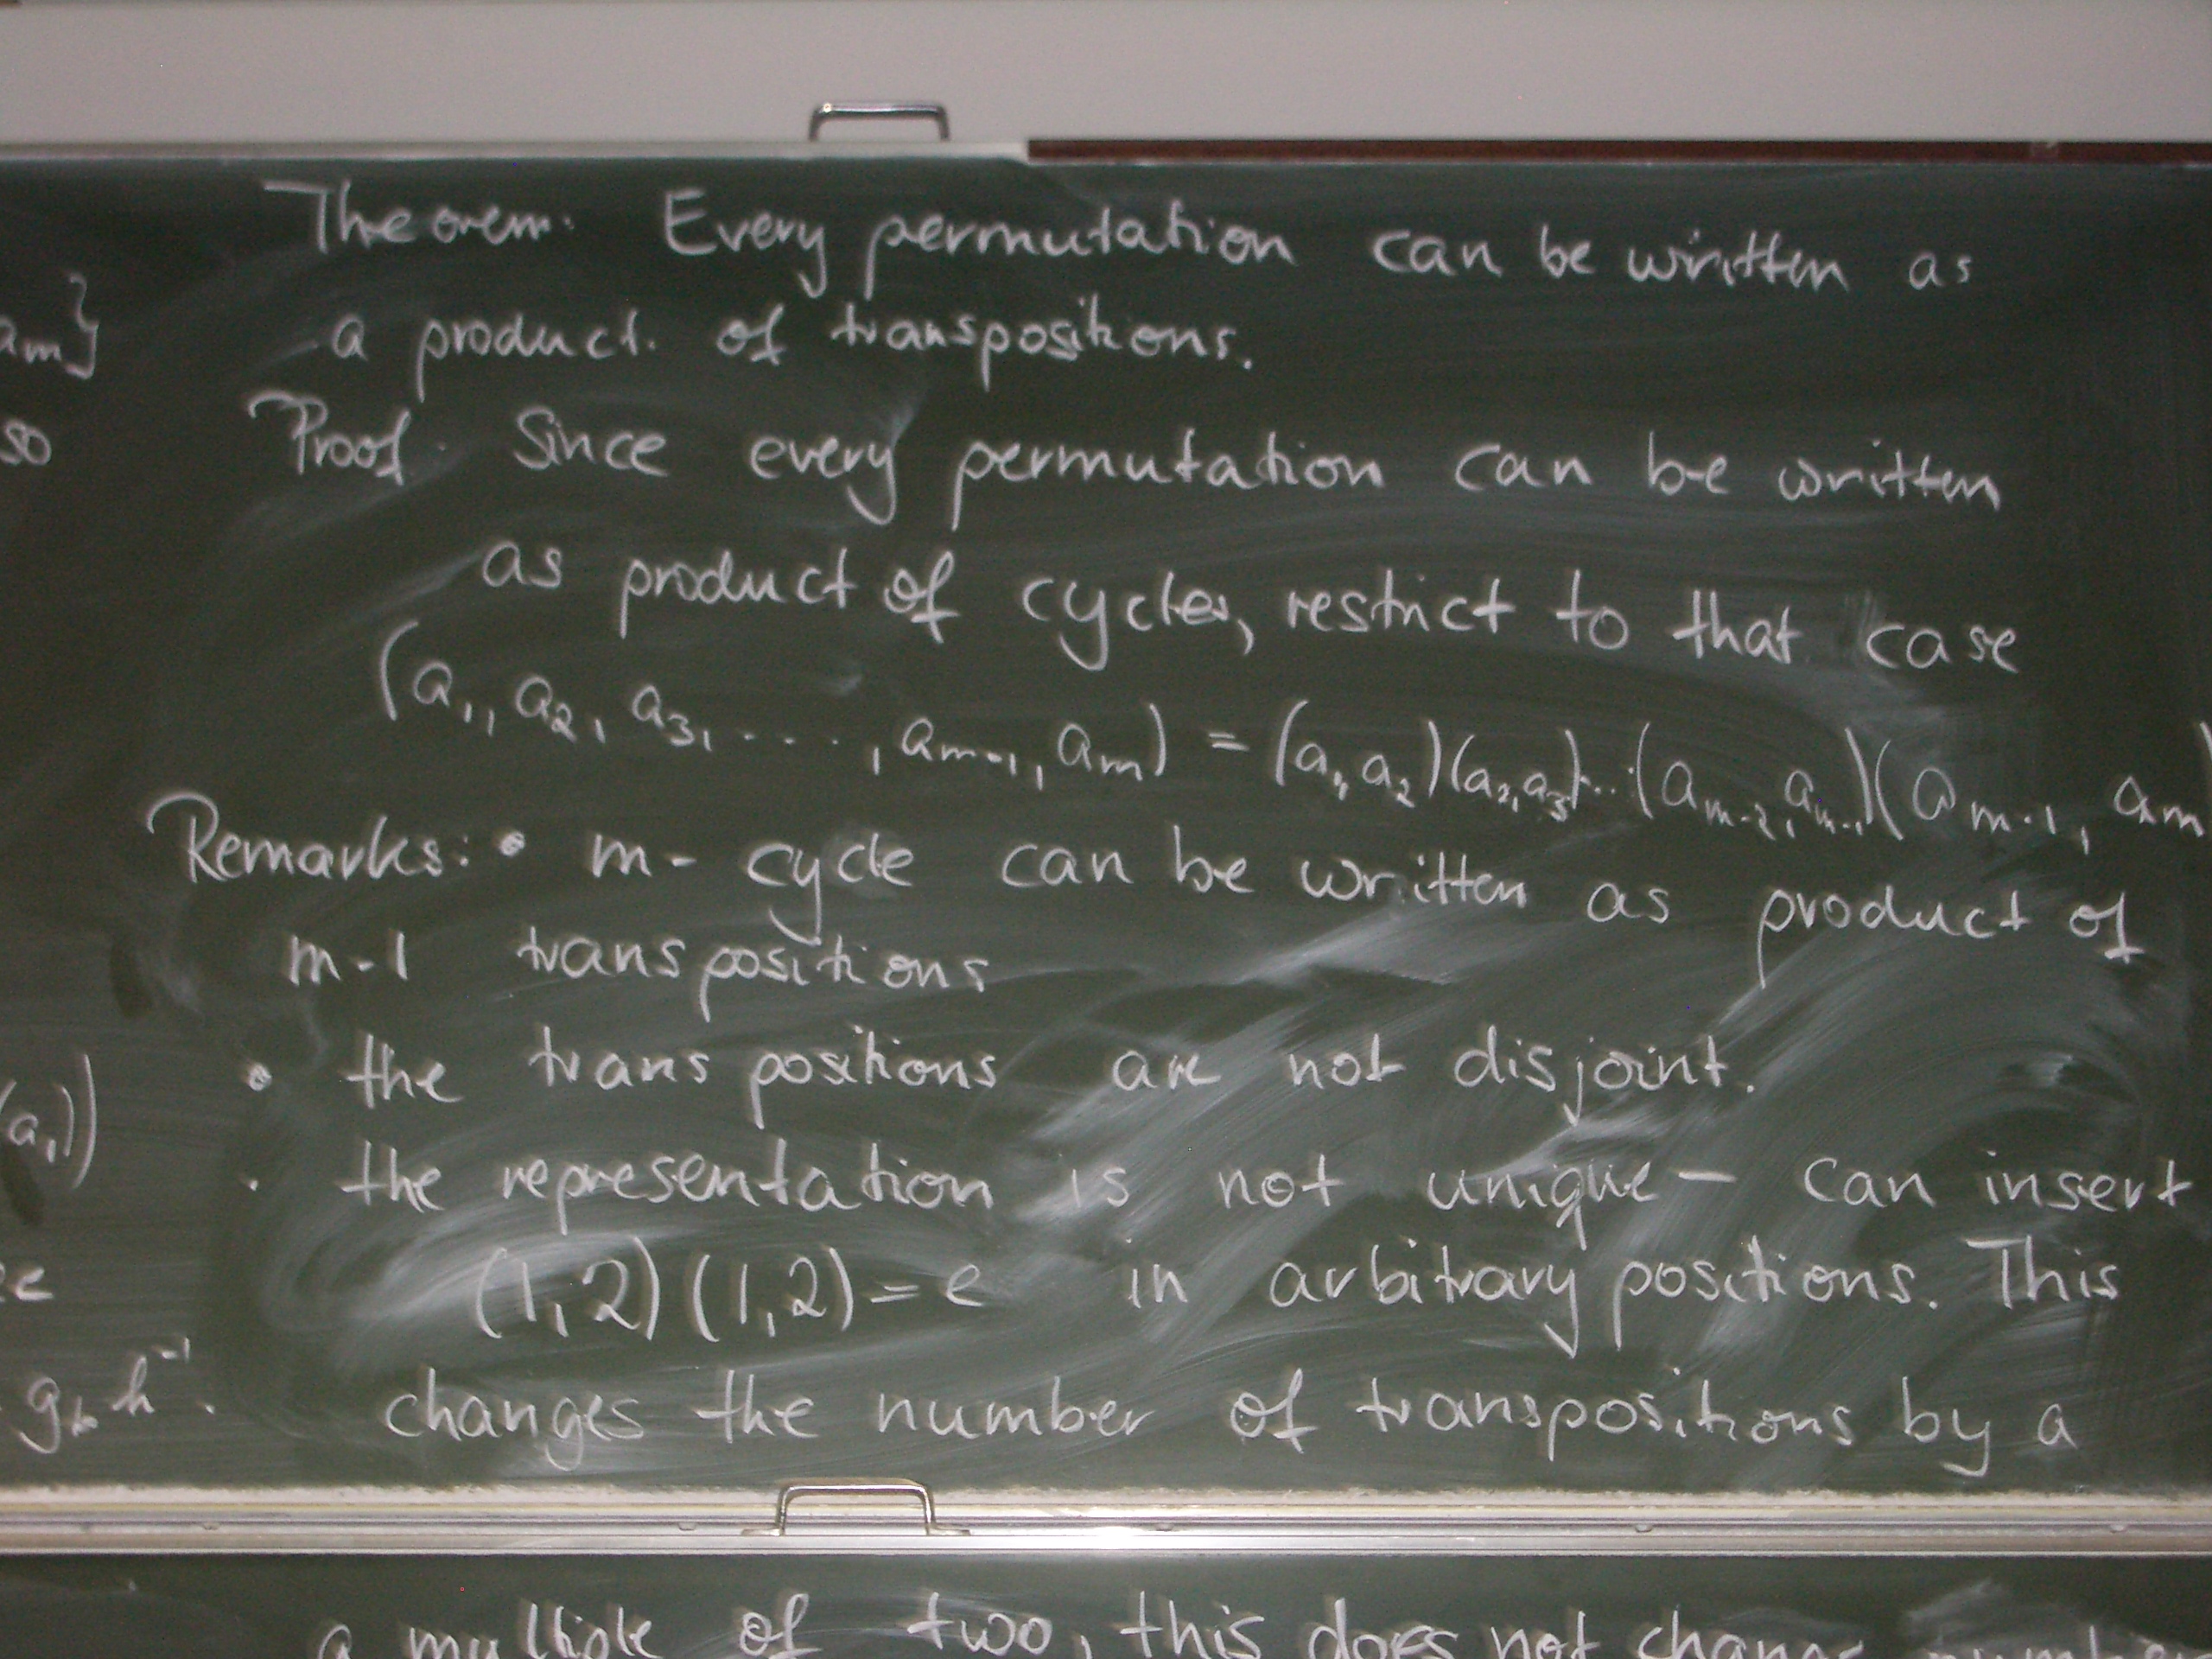 Theorem. Every permutation can be written as
a product of transpositions.
am}
so
Proof. Since every permutation can be written
as product of cycles, restrict to that case
(a1, a2, a3, ...., am-1, am) = (a1, a2)(a2, a3)...(am-2, am-1)(am-1, am)
Remarks: • m-cycle can be written as product of
m-1 transpositions
• the transpositions are not disjoint.
(a1))
• the representation is not unique - can insert
(1,2)(1,2)=e in arbitrary positions. This
h⁻¹.
changes the number of transpositions by a
a multiple of two, this does not change